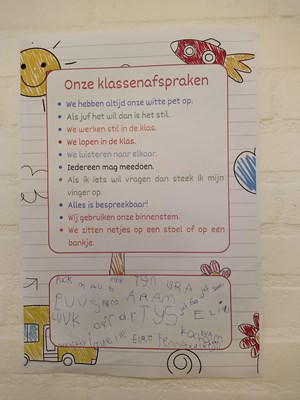 Onze klassenafspraken
We hebben altijd onze witte pet op.
Als juf het wil dan is het stil.
We werken stil in de klas.
We lopen in de klas.
We luisteren naar elkaar.
Iedereen mag meedoen.
Als ik iets wil vragen dan steek ik mijn
vinger op.
Alles is bespreekbaar!
Wij gebruiken onze binnenstem.
We zitten netjes op een stoel of op een
bankje.
PUCK
ARAM
TYS